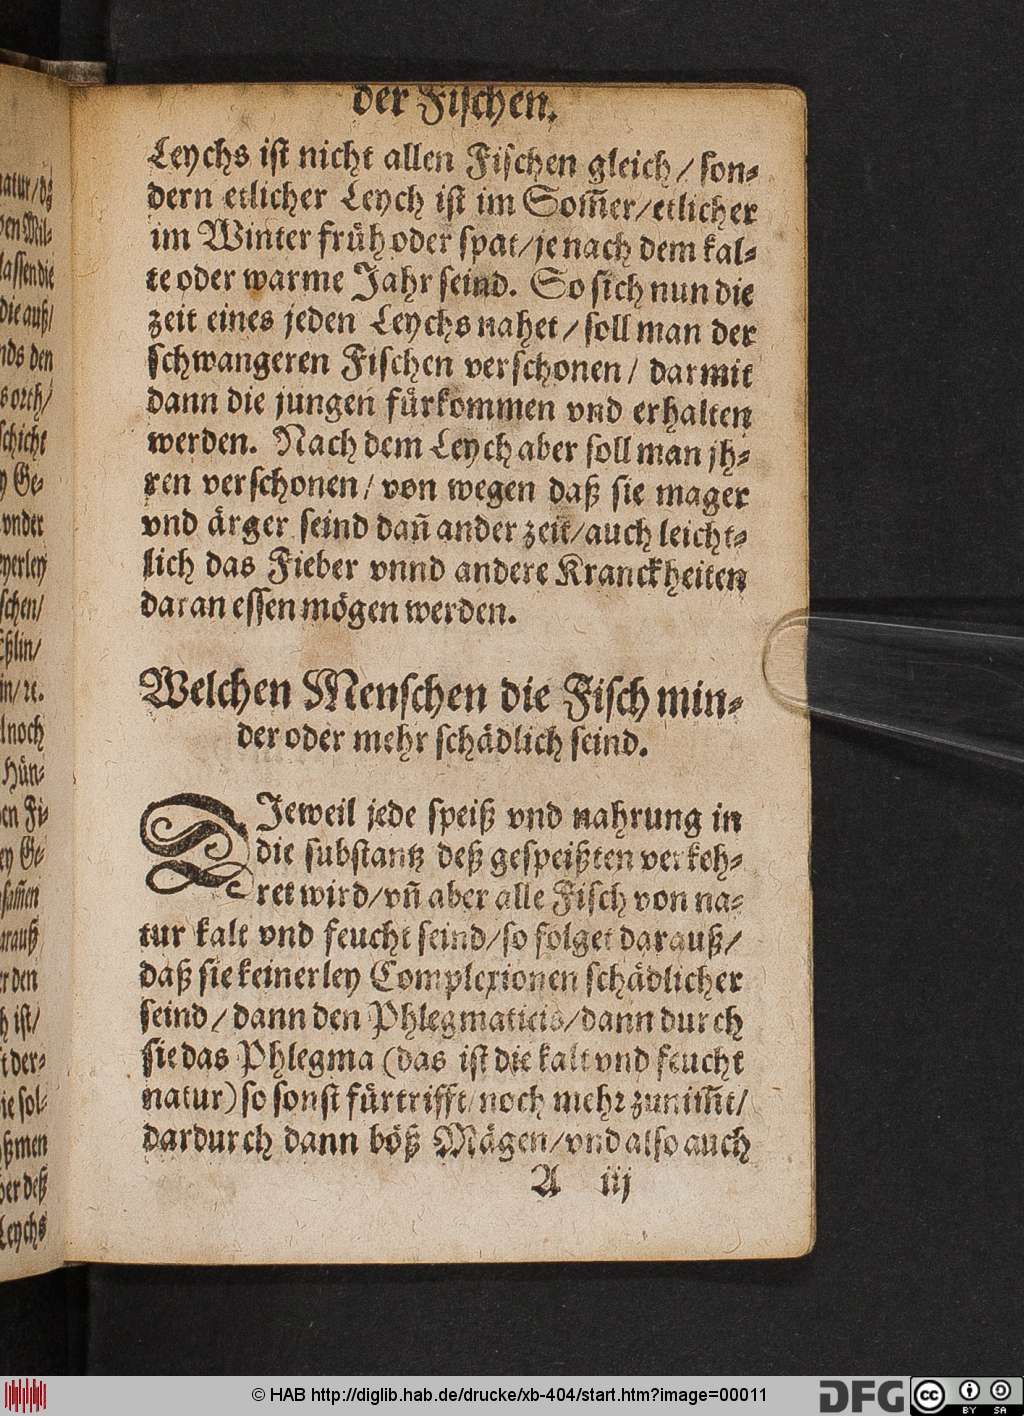 der Fischen.
Leychs ist nicht allen Fischen gleich / son-
dern etlicher Leych ist im Som̃er/etlicher
im Winter früh oder spat/je nach dem kal-
te oder warme Jahr seind. So sich nun die
zeit eines jeden Leychs nahet / soll man der
schwangeren Fischen verschonen / darmit
dann die jungen fürkommen vnd erhalten
werden. Nach dem Leych aber soll man jh-
ren verschonen / von wegen daß sie mager
vnd ärger seind dañ ander zeit/auch leicht-
lich das Fieber vnnd andere Kranckheiten
daran essen mögen werden.
Welchen Menschen die Fisch min-
der oder mehr schädlich seind.
DJeweil jede speiß vnd nahrung in
die substantz deß gespeißten verkeh-
ret wird/vñ aber alle Fisch von na-
tur kalt vnd feucht seind/so folget darauß/
daß sie keinerley Complexionen schädlicher
seind / dann den Phlegmaticis/dann durch
sie das Phlegma (das ist die kalt vnd feucht
natur) so sonst fürtrifft/noch mehr zunim̃t/
dardurch dann böß Mägen/vnd also auch
A iij
natur/dz
ben Wil-
lassen die
die auß/
nds den
s orth/
schicht
y Ge-
vnder
eyerley
schen/
Eßlin/
in/ ꝛc.
l noch
Hün-
en Fi-
ey Ge-
sam̃en
arauß
er den
h ist/
t der-
ie sol-
ßmen
ber deß
Leychs
© HAB http://diglib.hab.de/drucke/xb-404/start.htm?image=00011
DFG
cc
BY SA